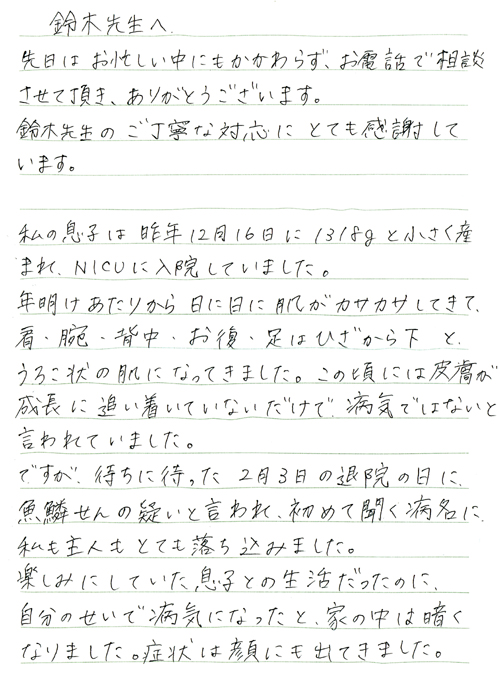 鈴木先生へ.
先日は お忙しい中にもかかわらず、お電話で相談
させて頂き、ありがとうございます。
鈴木先生の ご丁寧な対応に とても感謝して
います。
私の息子は 昨年12月16日に 1318gと小さく産
まれ、NICUに入院していました。
年明けあたりから 日に日に 肌がカサカサしてきて、
肩・腕・背中・お復・足はひざから下 と、
うろこ状の肌になってきました。この頃には皮膚が
成長に追い着いていないだけで、病気ではないと
言われていました。
ですが、待ちに待った 2月3日の退院の日に、
魚鱗せんの疑いと言われ、初めて聞く病名に、
私も主人も とても落ち込みました。
楽しみにしていた 息子との生活だったのに、
自分のせいで病気になったと、家の中は暗く
なりました。症状は顔にも出てきました。